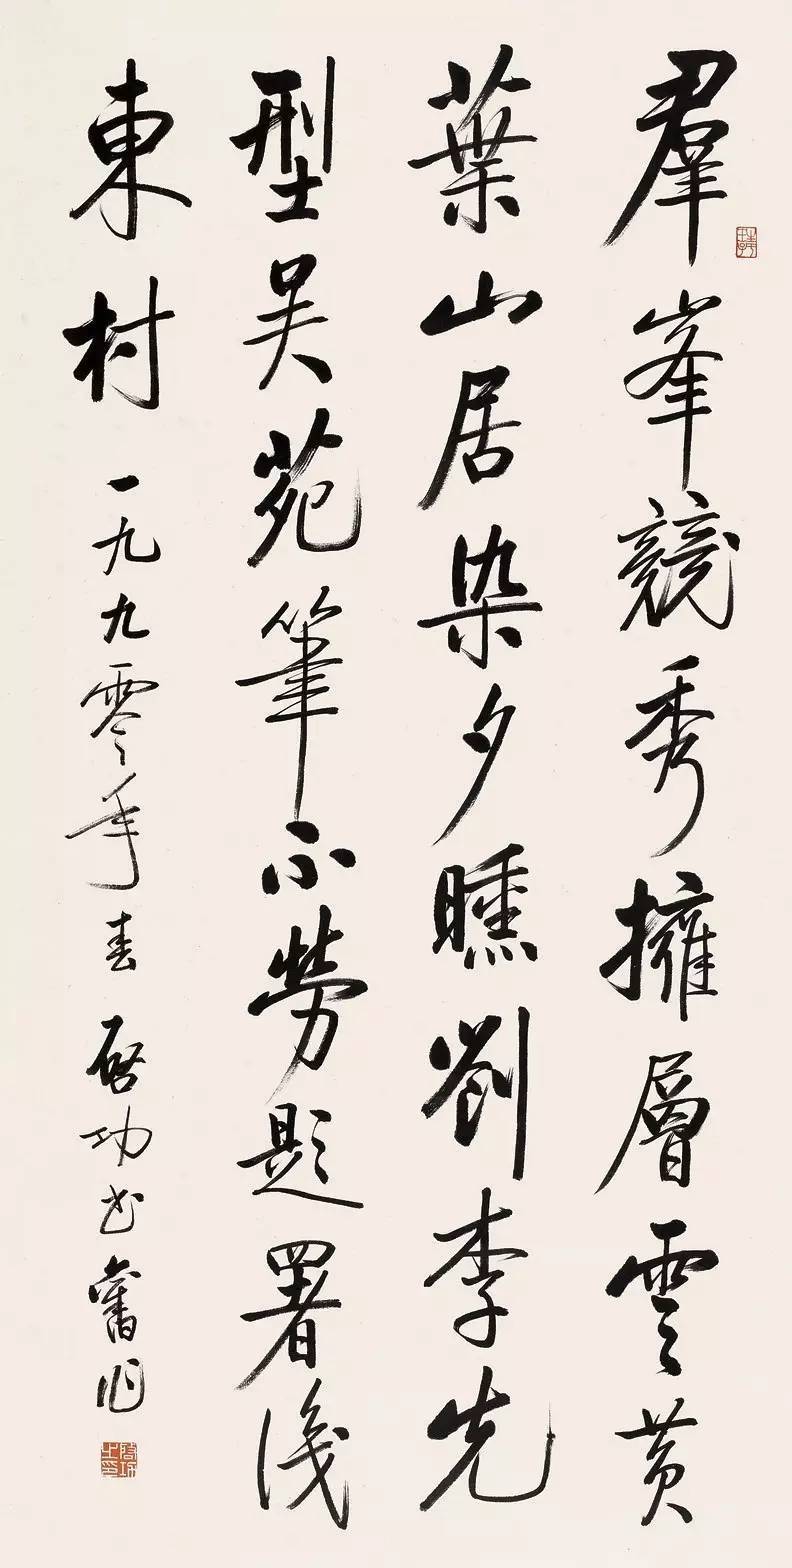 羣峯競秀擁層雲黄
葉山居染夕曛劉李先
型吴苑筆不勞題署識
東村 一九九零年春 啓功書舊作
啓功之印